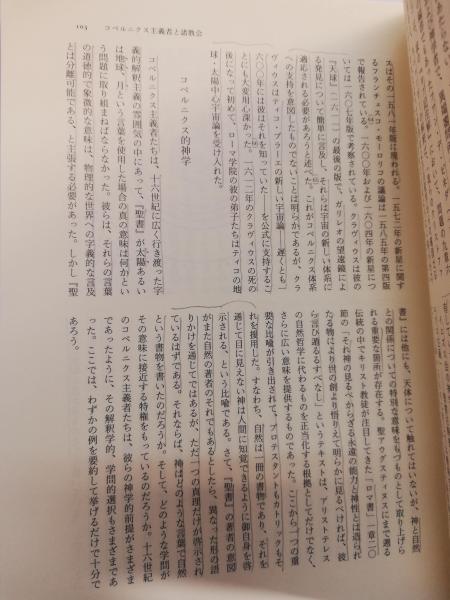 103　コペルニクス主義者と諸教会
スはその一五八一年版に現われる。一五七二年の新星に関す
るフランチェスコ・モーロリコの議論は一五八五年の第四版
で報告されている。一六〇〇年および一六〇四年の新星につ
いては一六〇七年版で考察されている。クラヴィウスは彼の
『天球』(一六一二)の最後の版で、ガリレオの望遠鏡によ
る発見について簡単に言及し、それらは宇宙の新しい体系に
適応される必要があろうと述べた。これがコペルニクス体系
への支持を意図したものでないことは明らかであるが、クラ
ヴィウスはティコ・ブラーエの新しい宇宙論——遅くとも一
六〇〇年には彼はそれを知っていた——を公式に支持するこ
とにも大変用心深かった。一六一二年のクラヴィウスの死の
後になって初めて、ローマ学院の彼の弟子たちはティコの地
球‐太陽中心宇宙論を受け入れた。
コペルニクス的神学
コペルニクス主義者たちは、十六世紀に広く行き渡った字
義的解釈主義の雰囲気の中にあって、『聖書』が太陽あるい
は地球、月という言葉を使用した場合の真の意味は何かとい
う問題に取り組まねばならなかった。彼らは、それらの言葉
の道徳的で象徴的な意味は、物理的な世界への字義的な言及
とは分離可能である、と主張する必要があった。しかし『聖
書』には他にも、天体について触れてはいないが、神と自然
との関係についての特別な意味をもつものとして取り上げら
れる重要な箇所が存在する。聖アウグスティヌスにまで遡る
伝統の中でキリスト教徒が注目してきた「ロマ書」一章二〇
節の「それ神の見るべからざる永遠の能力と神性とは造られ
たる物により世の創より悟りえて明らかに見るべければ、彼
ら言い遁るるすべなし」というテキストは、アリストテレス
の自然哲学に代わるものを正当化する根拠としてだけでなく、
さらに広い意味を提供するものであった。ここから一つの重
要な比喩が引き出されて、プロテスタントもカトリックもそ
れを援用した。すなわち、自然は一冊の書物であり、それを
通じて目に見えない神は人間に知覚できるように御自身を啓
示される、という比喩である。さて、『聖書』の著者の意図
がまた自然の著者のそれでもあるとしたら、異なった形の語
りかけを通じてではあるが、ただ一つの真理だけが啓示され
ているはずである。それならば、神はどのような言葉で自然
という書物を書いたのだろうか。そして、どのような学問が
その意味に接近する特権をもっているのだろうか。十六世紀
のコペルニクス主義者たちは、彼らの神学的前提がさまざま
であったように、その解釈学的、学問的選択もさまざまであ
った。ここでは、わずかの例を要約して挙げるだけで十分で
あろう。